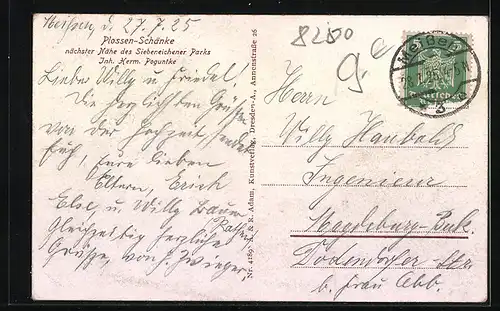 Meissen, d. 27.7.25
Plossen-Schänke
nächster Nähe des Siebeneichener Parks
Inh. Herm. Poguntke
Liebe Willy u. Friedel!
Die herzlichsten Grüße
von der Hochzeit senden
Euch, Eure lieben
Eltern, Erich
Else u. Willy
Gleichzeitig herzliche
Grüsse, von
R. Adam, Kunstverlag, Dresden-A., Annenstraße 26
8250
Meißen
3
Herrn
Willy Haubold
Ingenieur
Magdeburg-Buk.
Dodendorfer Str.
b. Frau Abb.